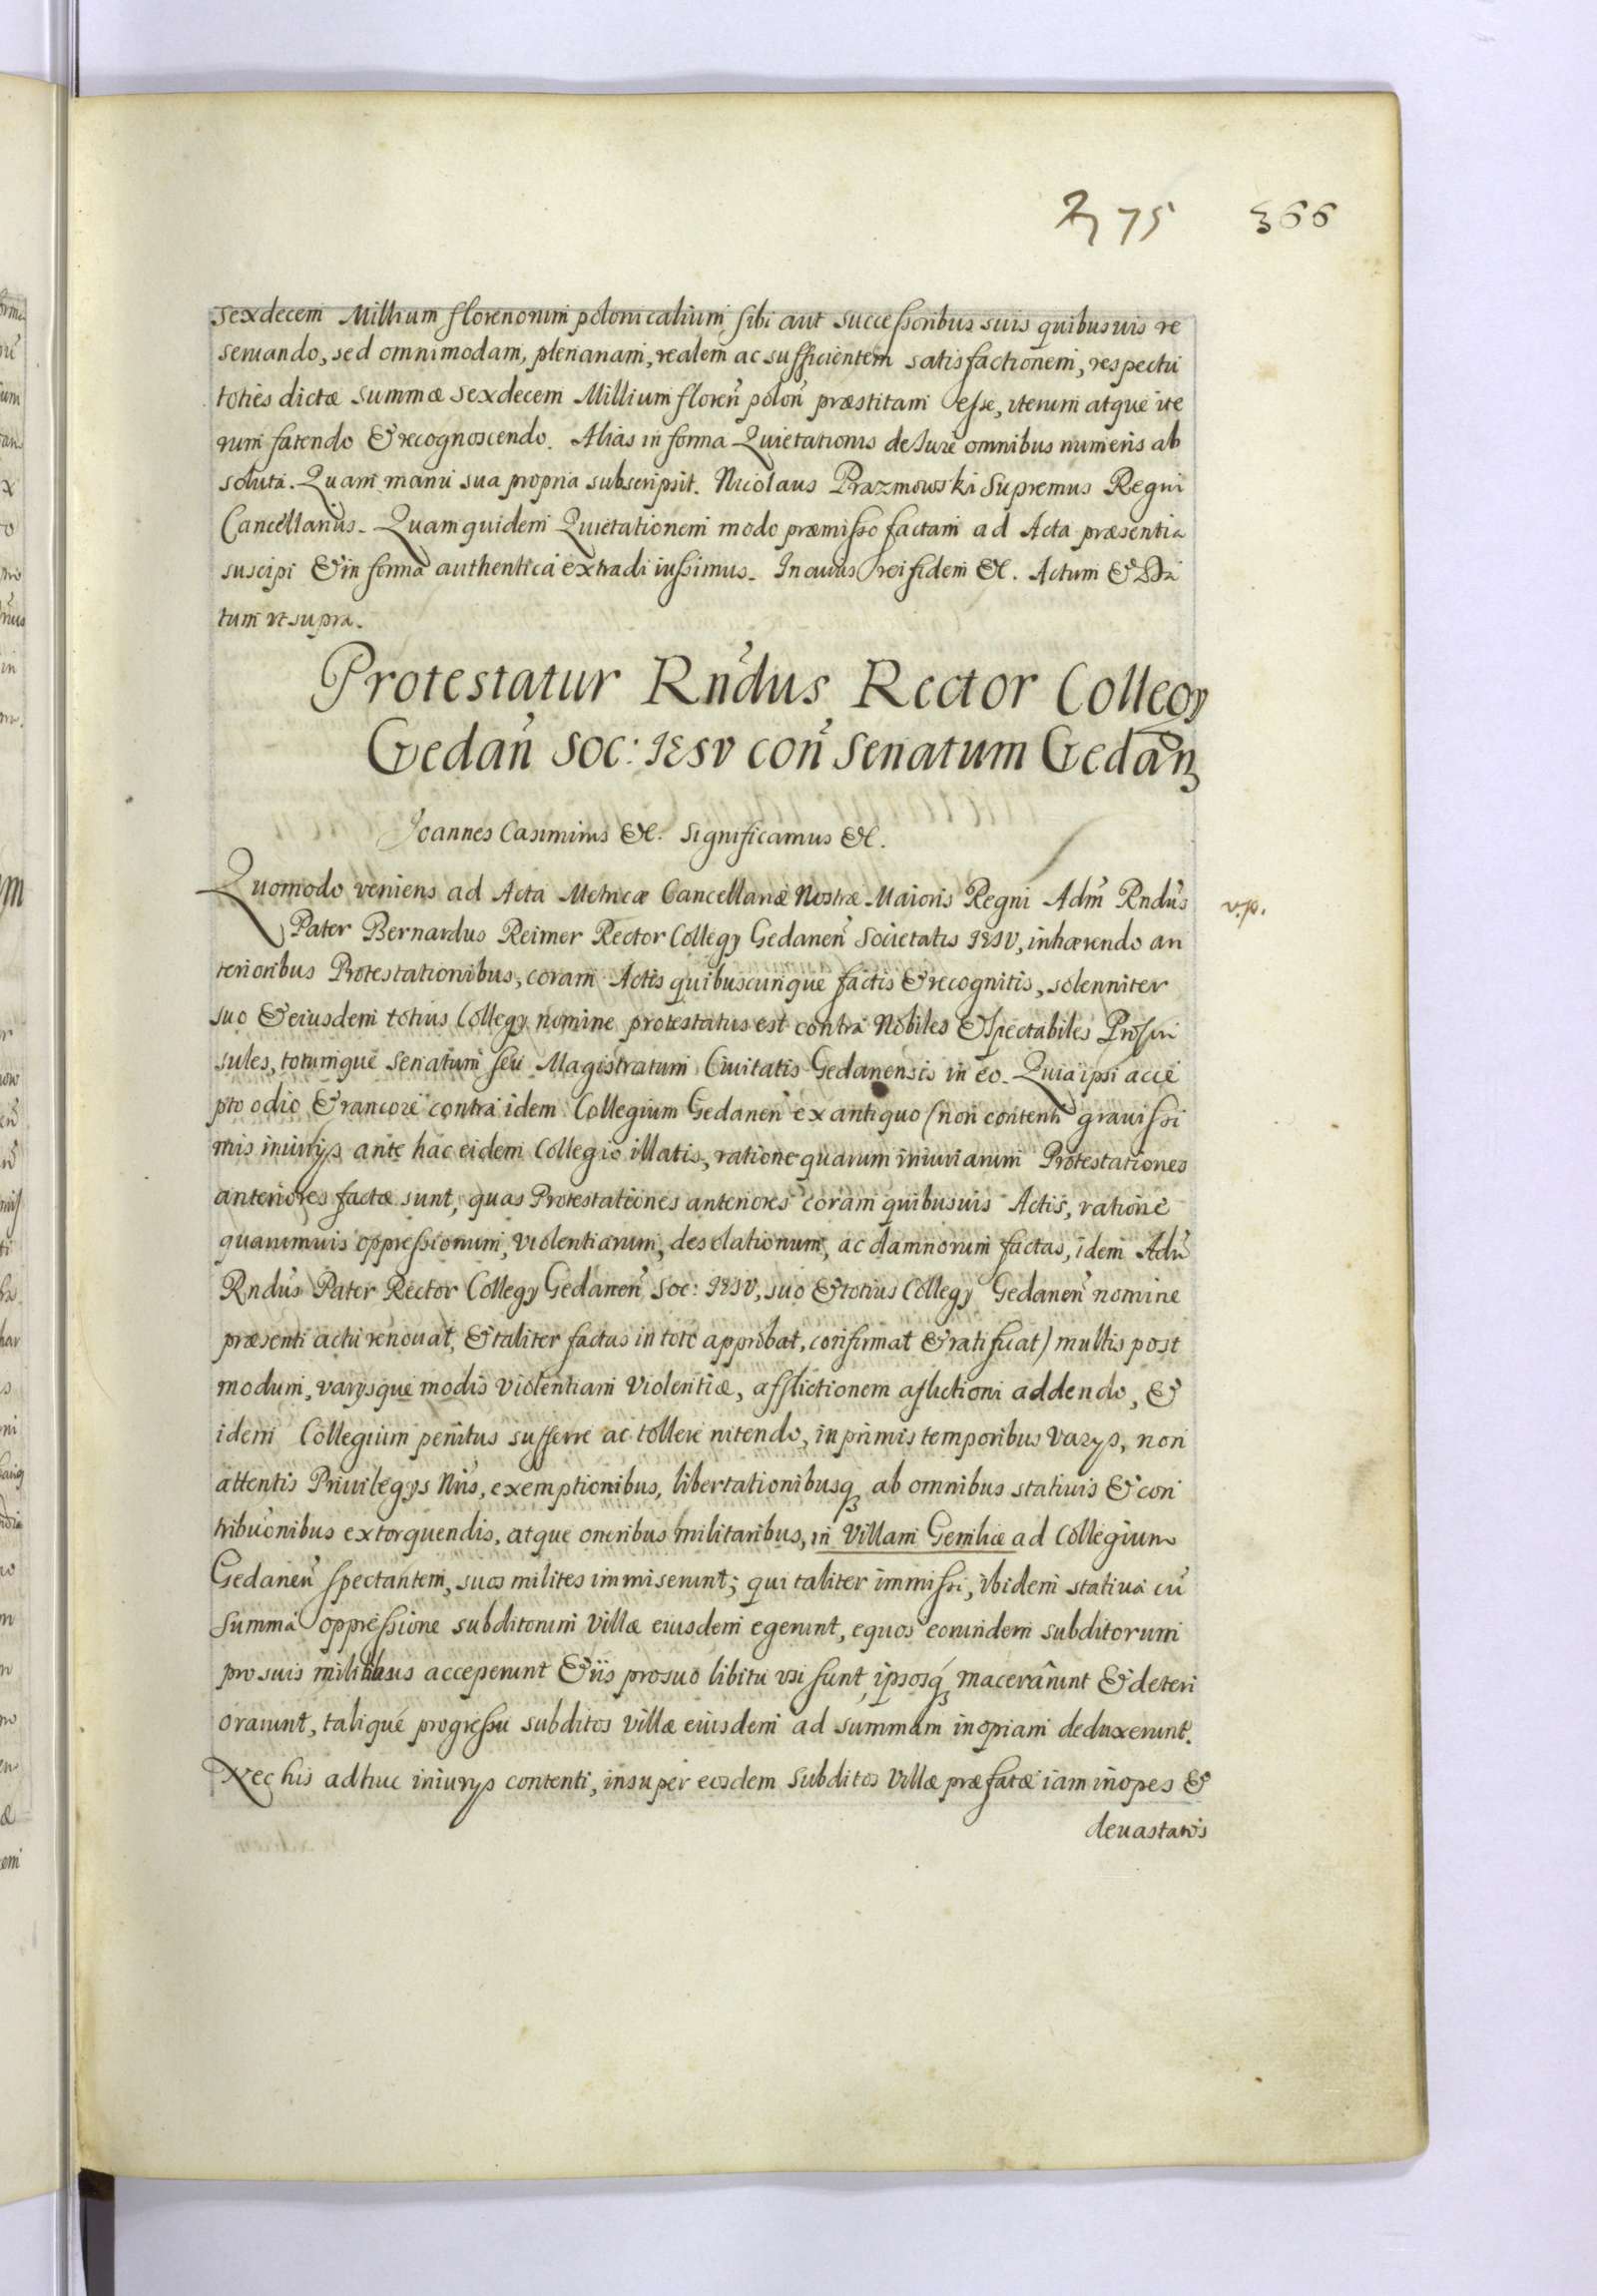 375 366
sexdecem Millium florenorum polonicalium, sibi aut successoribus suis quibusuis re
seruando, sed omnimodam, plenariam, realem ac sufficientem satisfactionem, respectu
toties dictæ summæ sexdecem Millium floreñ poloñ præstitam esse, iterum atque ite
rum fatendo & recognoscendo. Alias in forma Quietationis de Iure omnibus numeris ab
soluta. Quam manu sua propria subscripsit. Nicolaus Prazmowski Supremus Regni
Cancellarius. Quam quidem Quietationem modo præmisso factam ad Acta præsentia
suscipi & in forma authentica extradi iussimus. In cuius rei fidem &c. Actum & Da
tum vt supra.
Protestatur Rndus Rector Collegy
Gedañ Soc: IESV coñ Senatum Gedañ
Ioannes Casimirus &c. Significamus &c.
Quomodo veniens ad Acta Metricæ Cancellariæ Nostræ Maioris Regni Adm̃ Rndus
v.p.
Pater Bernardus Reimer Rector Collegy Gedaneñ Societatis IESV, inhærendo an
terioribus Protestationibus, coram Actis quibuscunque factis & recognitis, solenniter
suo & eiusdem totius Collegy nomine protestatus est contra Nobiles & Spectabiles
sules, totumque Senatum seu Magistratum Ciuitatis Gedanensis in eo. Quia ipsi acce
pto odio & rancore contra idem Collegium Gedaneñ ex antiquo (non contenti grauissi
mis iniurys ante hac eidem Collegio illatis, ratione quarum iniuriarum Protestationes
anteriores factæ sunt, quas Protestationes anteriores coram quibusuis Actis, ratione
quarumuis oppressionum, violentiarum, desolationum, ac damnorum factas, idem Adm̃
Rndus Pater Rector Collegy Gedaneñ Soc: IESV, suo & totius Collegy Gedaneñ nomine
præsenti actu renouat, & taliter factas in toto approbat, confirmat & ratificat) multis post
modum, varysque modis violentiam violentiæ, afflictionem aflictioni addendo, &
idem Collegium penitus sufferre ac tollere nitendo, inprimis temporibus varys, non
attentis Priuilegys Nris, exemptionibus, libertationibusq; ab omnibus statiuis & con
tribuonibus extorquendis, atque oneribus militaribus, in Villam Gemlice ad Collegium
Gedaneñ spectantem, suos milites immiserunt; qui taliter immissi, ibidem statiua cũ
summa oppressione subditorum villæ eiusdem egerunt, equos eorundem subditorum
pro suis militibus acceperunt & iis pro suo libitu vsi sunt, ipsosq; macerârunt & deteri
orarunt, talique progressu subditos villæ eiusdem ad summam inopiam deduxerunt.
Nec his adhuc iniurys contenti, insuper eosdem subditos Villæ præfatæ iam inopes &
deuastatos